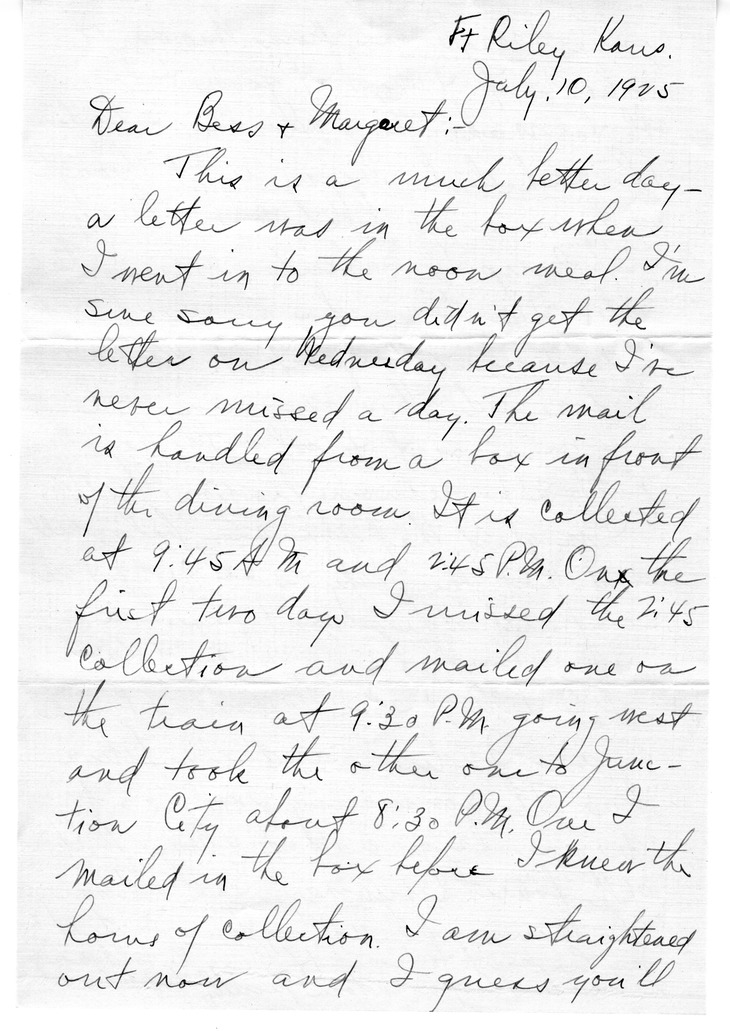 Ft Riley Kans.
July 10, 1925
Dear Bess & Margaret:-
This is a much better day-
a letter was in the box when
I went in to the noon meal. I'm
sure sorry you didn't get the
letter on Wednesday because I've
never missed a day. The mail
is handled from a box in front
of the dining room. It is collected
at 9:45 A M and 2:45 P.M. On the
first two days I missed the 2:45
collection and mailed one on
the train at 9:30 P.M. going west
and took the other one to Junc-
tion City about 8:30 P.M. One I
mailed in the box before I knew the
hours of collection. I am straightened
out now and I guess you'll